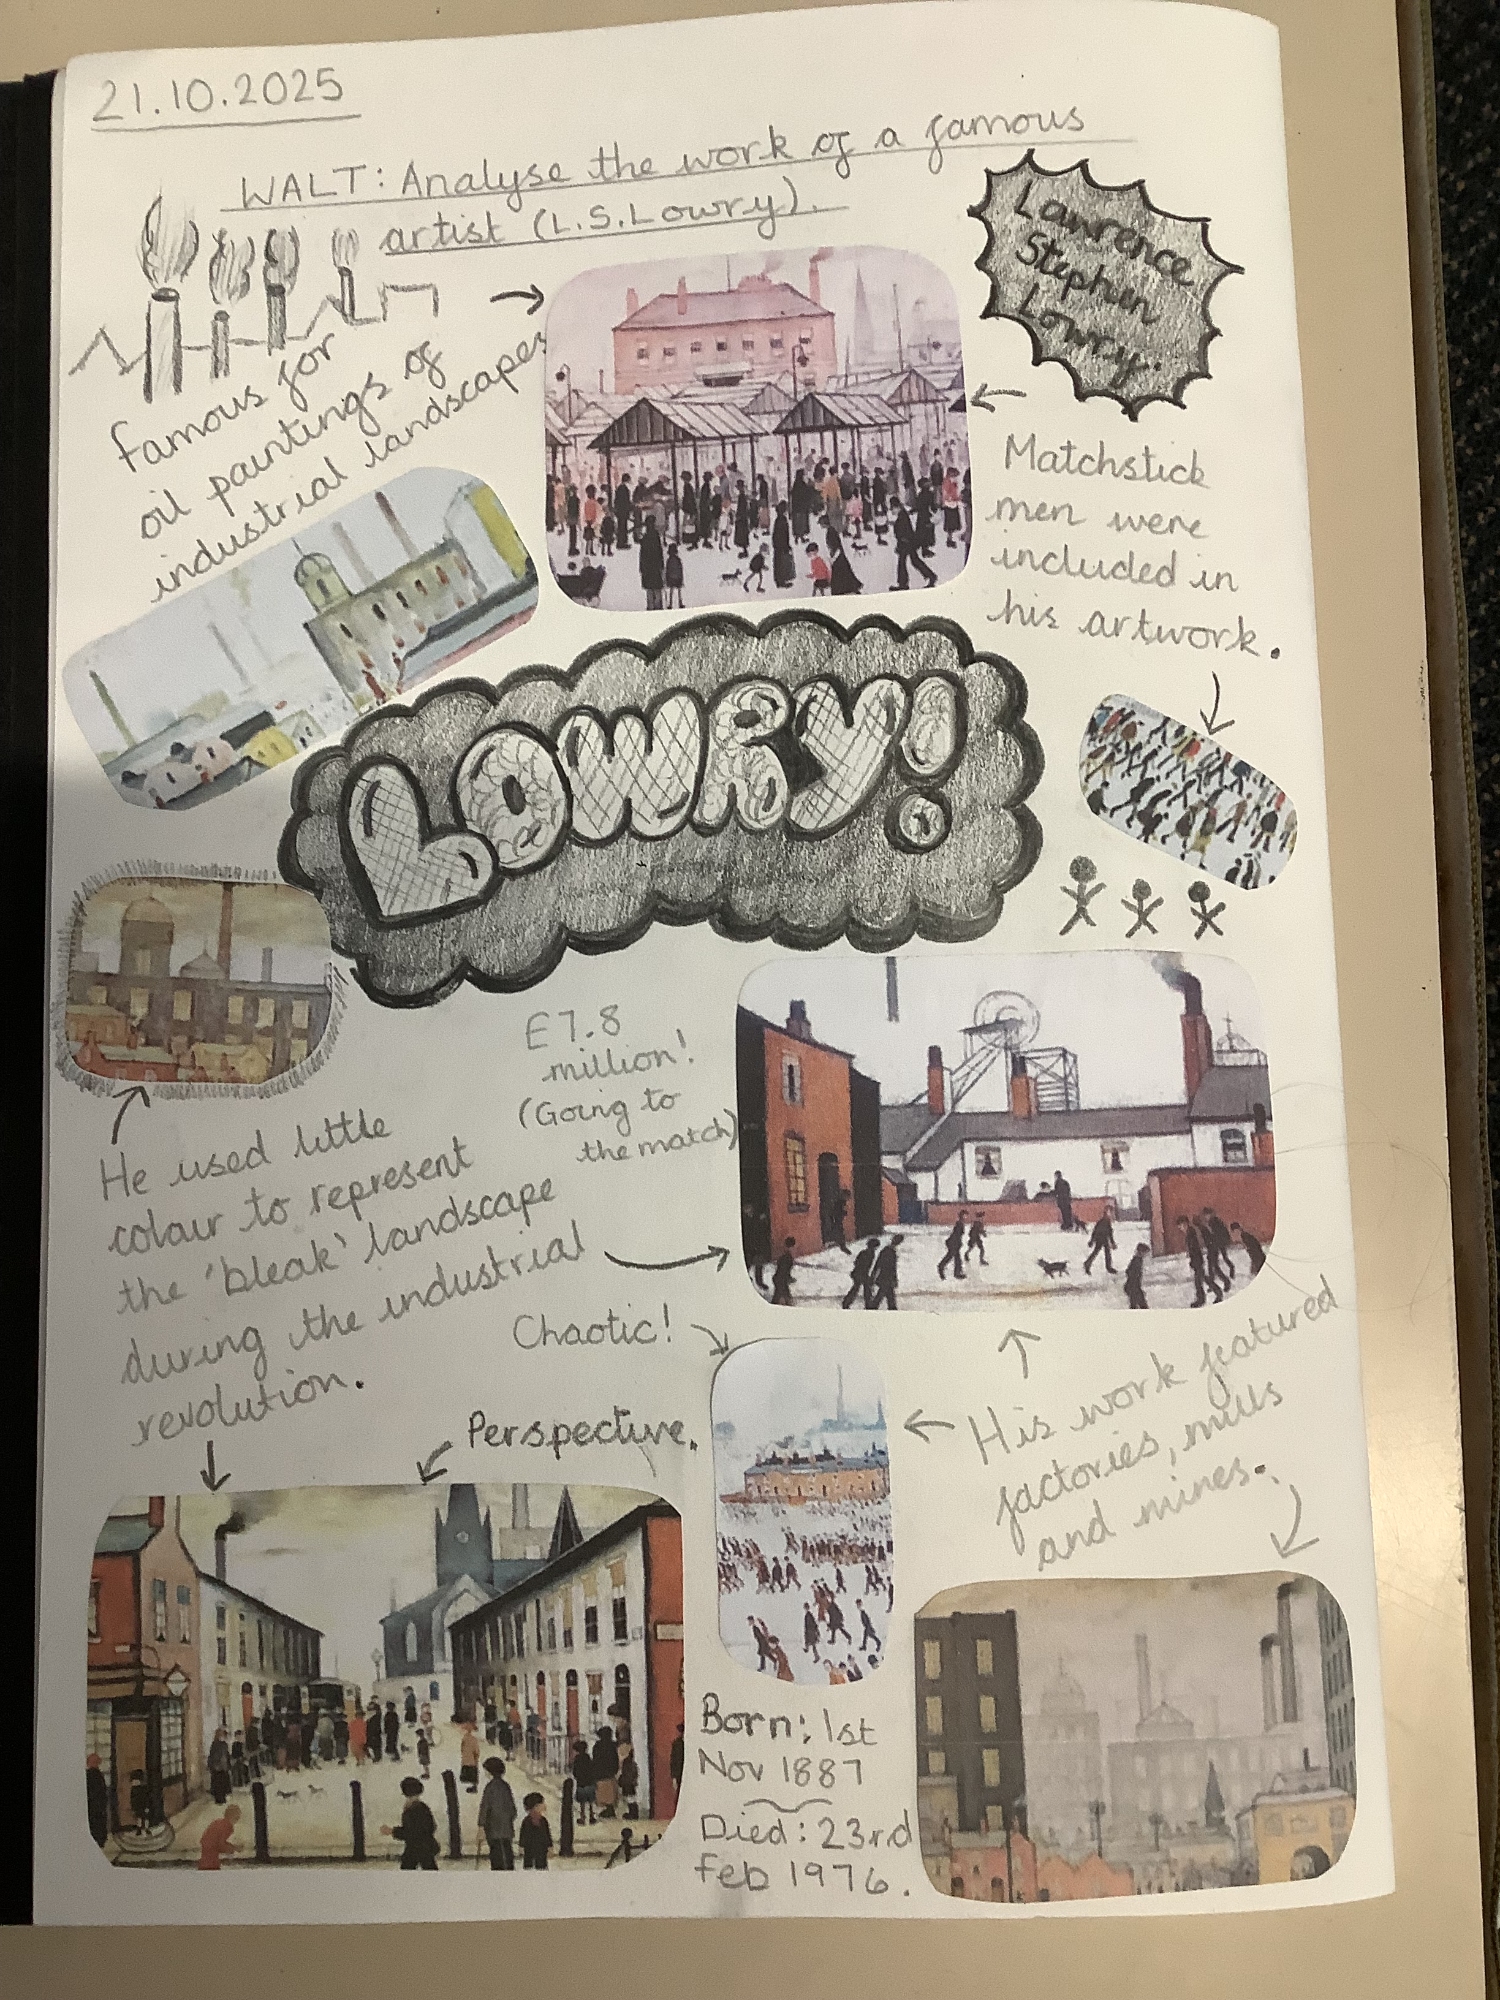 21.10.2025
WALT: Analyse the work of a famous
artist (L.S.Lowry).
Lawrence
Stephen
Lowry.
Famous for
oil paintings of
industrial landscapes
Matchstick
men were
included in
his artwork.
LOWRY!
£7.8
million!
(Going to
the match)
He used little
colour to represent
the 'bleak' landscape
during the industrial
revolution.
Chaotic!
Perspective.
His work featured
factories, mills
and mines.
Born: 1st
Nov 1887
Died: 23rd
Feb 1976.